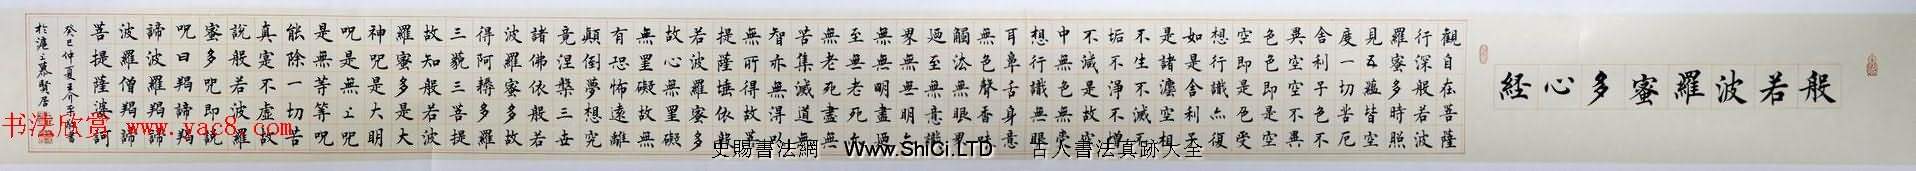 般若波羅蜜多心経
觀自在菩薩
行深般若波
羅蜜多時照
見五蘊皆空
度一切苦厄
舍利子色不
異空空不異
色色即是空
空即是色受
想行識亦復
如是舍利子
是諸法空相
不生不滅不
垢不淨不增
不減是故空
中無色無受
想行識無眼
耳鼻舌身意
無色聲香味
觸法無眼界
乃至無意識
界無無明亦
無無明盡乃
至無老死亦
無老死盡無
苦集滅道無
智亦無得以
無所得故菩
提薩埵依般
若波羅蜜多
故心無罣礙
無罣礙故無
有恐怖遠離
顛倒夢想究
竟涅槃三世
諸佛依般若
波羅蜜多故
得阿耨多羅
三藐三菩提
故知般若波
羅蜜多是大
神呪是大明
呪是無上呪
是無等等呪
能除一切苦
真實不虛故
說般若波羅
蜜多呪即說
呪曰羯諦羯
諦波羅羯諦
波羅僧羯諦
菩提薩婆訶
癸巳仲夏
於滬上慕賢居
书法欣赏 www.yac8.com
史賜書法網 Www.ShiCi.LTD 古人書法真跡大全